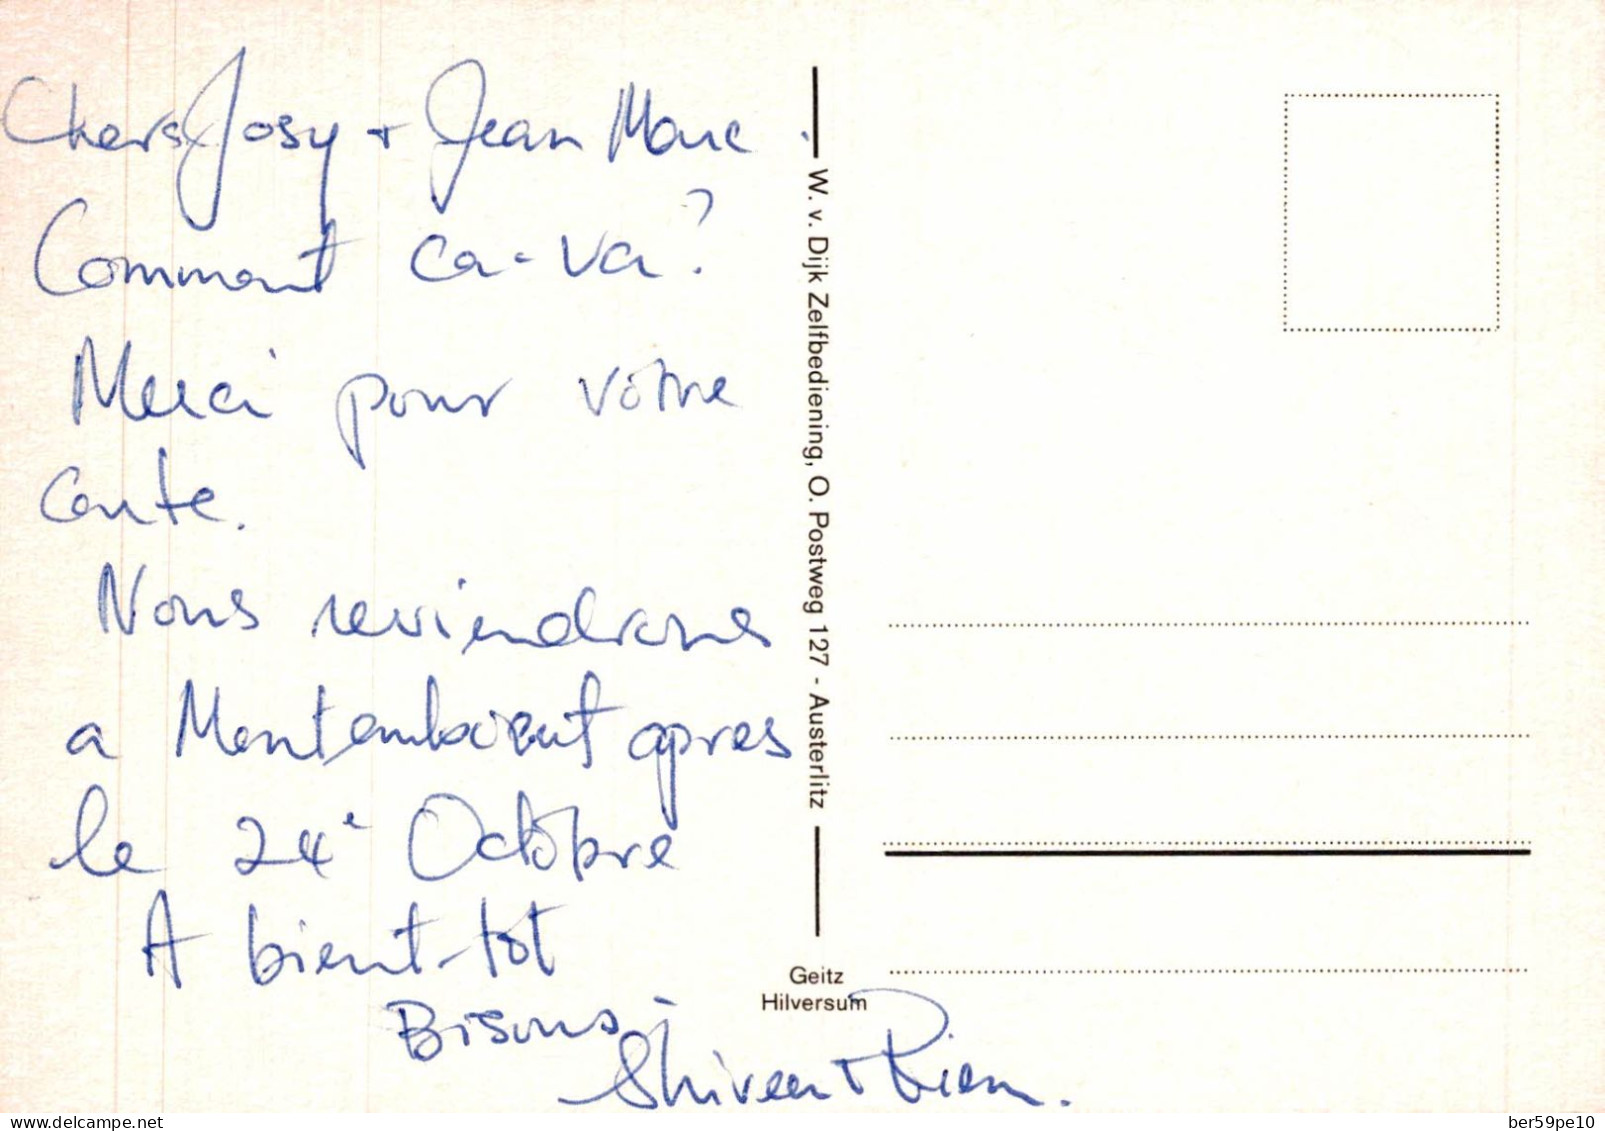 Chers Josy + Jean Marc.
Comment ca-va?
Merci pour votre
carte.
Nous reviendrons
a après
le 24e Octobre
A bient-tot
Bisous
Shireen + Rien.
W. v. Dijk Zelfbediening, O. Postweg 127 - Austerlitz
Geitz
Hilversum
delcampe.net
ber59pe10